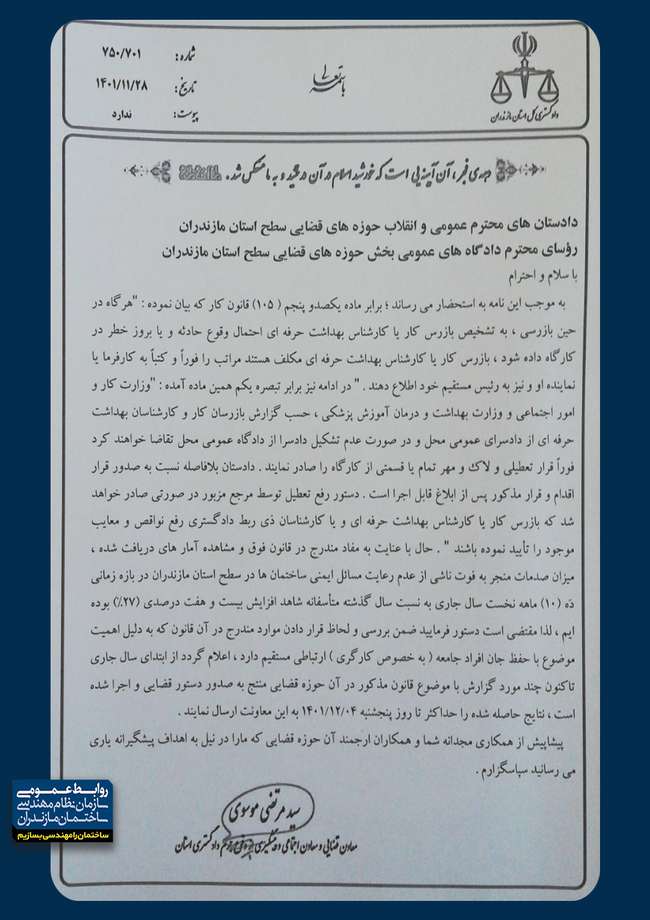 شماره: ۷۵۰/۷۰۱
باسمه تعالی
تاریخ: ۱۴۰۱/۱۱/۲۸
پیوست: ندارد
دادگستری کل استان مازندران
دهه ی فجر، آن آیینه‌یی است که خورشید اسلام در آن درخشید و به ما منعکس شد.
دادستان های محترم عمومی و انقلاب حوزه های قضایی سطح استان مازندران
رؤسای محترم دادگاه های عمومی بخش حوزه های قضایی سطح استان مازندران
با سلام و احترام
به موجب این نامه به استحضار می رساند ؛ برابر ماده یکصدو پنجم ( ۱۰۵) قانون کار که بیان نموده : "هرگاه در
حین بازرسی ، به تشخیص بازرس کار یا کارشناس بهداشت حرفه ای احتمال وقوع حادثه و یا بروز خطر در
کارگاه داده شود ، بازرس کار یا کارشناس بهداشت حرفه ای مکلف هستند مراتب را فوراً و کتباً به کارفرما یا
نماینده او و نیز به رئیس مستقیم خود اطلاع دهند . " در ادامه نیز برابر تبصره یکم همین ماده آمده : "وزارت کار و
امور اجتماعی و وزارت بهداشت و درمان آموزش پزشکی ، حسب گزارش بازرسان کار و کارشناسان بهداشت
حرفه ای از دادسرای عمومی محل و در صورت عدم تشکیل دادسرا از دادگاه عمومی محل تقاضا خواهند کرد
فوراً قرار تعطیلی و لاک و مهر تمام یا قسمتی از کارگاه را صادر نمایند . دادستان بلافاصله نسبت به صدور قرار
اقدام و قرار مذکور پس از ابلاغ قابل اجرا است . دستور رفع تعطیل توسط مرجع مزبور در صورتی صادر خواهد
شد که بازرس کار یا کارشناس بهداشت حرفه ای و یا کارشناسان ذی ربط دادگستری رفع نواقص و معایب
موجود را تأیید نموده باشند " . حال با عنایت به مفاد مندرج در قانون فوق و مشاهده آمار های دریافت شده ،
میزان صدمات منجر به فوت ناشی از عدم رعایت مسائل ایمنی ساختمان ها در سطح استان مازندران در بازه زمانی
ده (۱۰) ماهه نخست سال جاری به نسبت سال گذشته متأسفانه شاهد افزایش بیست و هفت درصدی (۲۷%) بوده
ایم ، لذا مقتضی است دستور فرمایید ضمن بررسی و لحاظ قرار دادن موارد مندرج در آن قانون که به دلیل اهمیت
موضوع با حفظ جان افراد جامعه ( به خصوص کارگری ) ارتباطی مستقیم دارد ، اعلام گردد از ابتدای سال جاری
تاکنون چند مورد گزارش با موضوع قانون مذکور در آن حوزه قضایی منتج به صدور دستور قضایی و اجرا شده
است ، نتایج حاصله شده را حداکثر تا روز پنجشنبه ۱۴۰۱/۱۲/۰۴ به این معاونت ارسال نمایند .
پیشاپیش از همکاری مجدانه شما و همکاران ارجمند آن حوزه قضایی که مارا در نیل به اهداف پیشگیرانه یاری
می رسانید سپاسگزارم .
سید مرتضی موسوی
معاون قضایی و معاون اجتماعی و پیشگیری از وقوع جرم دادگستری استان
روابط عمومی
سازمان نظام مهندسی
ساختمان مازندران
ساختمان را مهندسی بسازیم